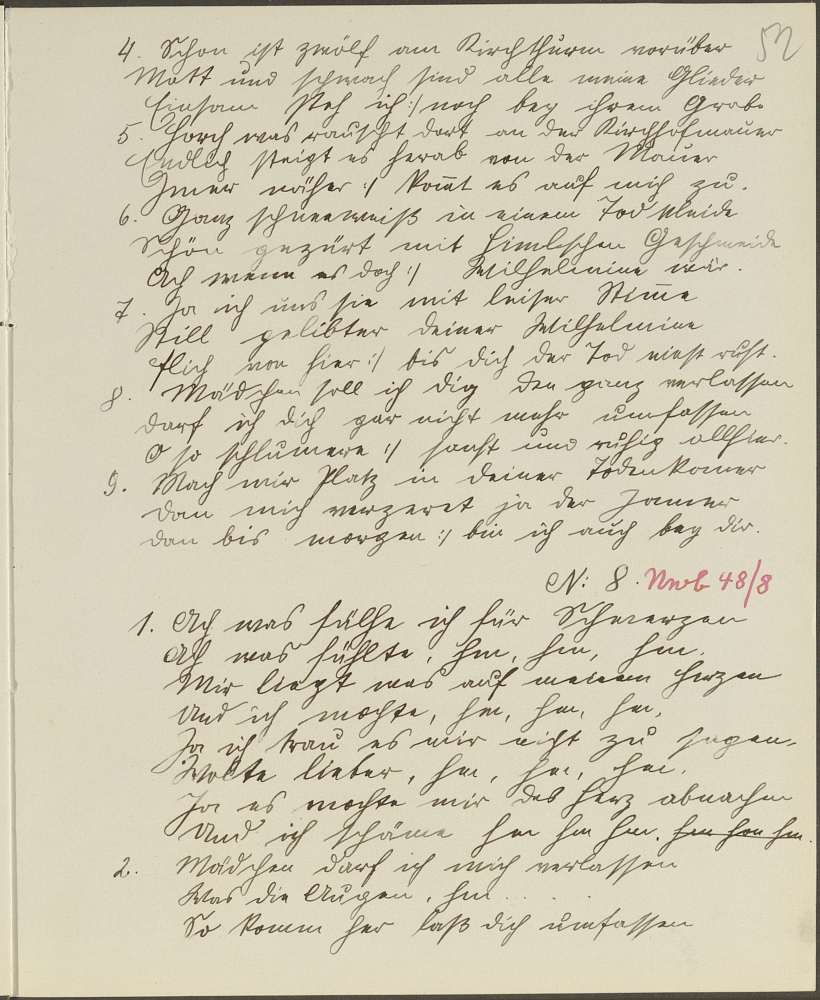 52
4. Schon ist zwölf am Kirchthurm vorüber
Matt und schwach sind alle meine Glieder
Einsam steh ich :/ noch bey ihrem Grabe
5. Horch was rauscht dort an der Kirchhofmauer
Endlich steigt es herab von der Mauer
Imer näher :/ kom̄t es auf mich zu.
6. Ganz schneeweiß in einem Todkleide
Schön gezürt mit himlschen Geschmeide
Ach wenn es doch :/ Wilhelmine wär.
7. Ja ich uns sie mit leiser Stim̄e
Still gelibter deiner Wilhelmine
flich von hier :/ bis dich der Tod einst ruft.
8. Mädchen soll ich dig den ganz verlassen
darf ich dich gar nicht mehr umfassen
O so schlumere :/ sanft und ruhig allhier.
9. Mach mir Platz in deiner Todenkamer
dan mich verzeret ja der Jamer
dan bis morgen :/ bin ich auch bey dir.
N: 8. Nwb 48/8
1. Ach was fülhe ich für Schmerzen
Ach was fühlte, hm, hm, hm.
Mir liegt was auf meinem Herzen
Und ich möchte, hm, hm, hm,
Ja ich trau es mir nicht zu sagen,
Wolte lieber, hm, hm, hm.
Ja es mochte mir das Herz abnachen
Und ich schäme hm hm hm. hm hm hm.
2. Mädchen darf ich mich verlassen
Was die Augen, hm . . .
So komm her laß dich umfassen